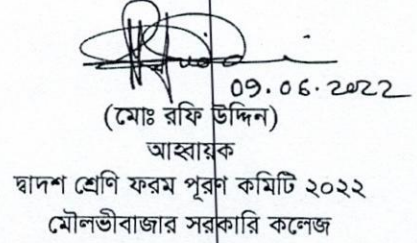 09.06.2022
(মোঃ রফি উদ্দিন)
আহ্বায়ক
দ্বাদশ শ্রেণি ফরম পূরণ কমিটি ২০২২
মৌলভীবাজার সরকারি কলেজ